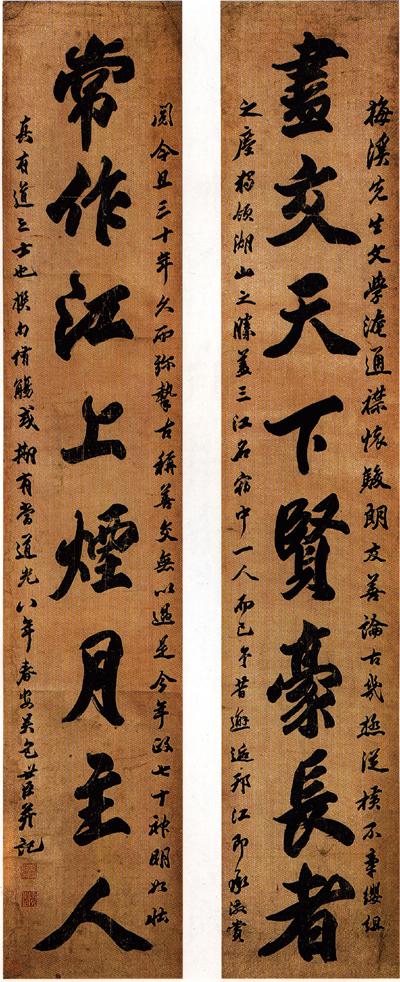 梅溪先生文學淹通襟懷駿朗友善論古幾極從橫不秉纓組
盡交天下賢豪長者
之塵獨領湖山之勝蓋三江名宿中一人而已予昔邂逅邗江即承激賞
閱今且三十年久而彌摯古稱善交無以過是今年政七十神明如壯
常作江上煙月主人
真有道之士也撰句侑觴或期有當道光八年春安吳包世臣并記